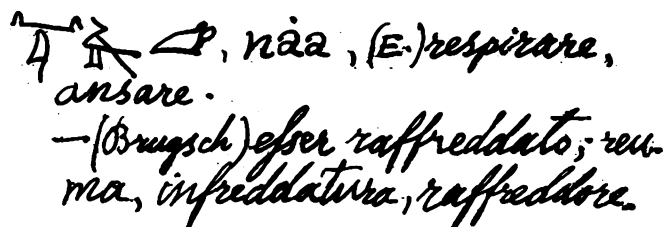 , nȧa, (E.) respirare,
ansare.
— (Brugsch) esser raffreddato; reu-
ma, infreddatura, raffreddore.